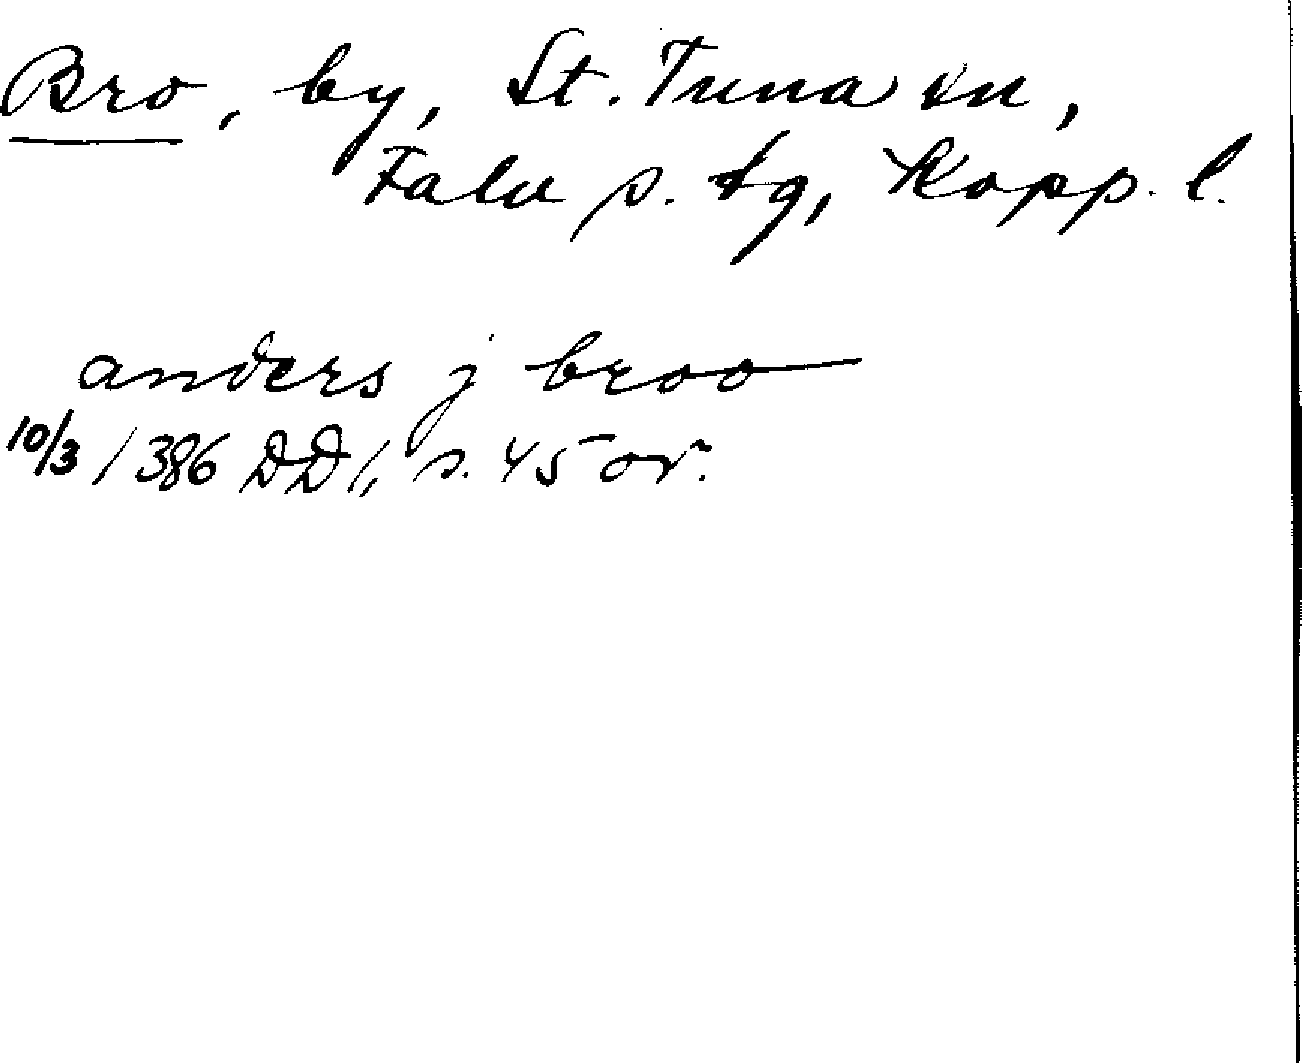 Bro, by, St. Tuna sn,
Falu s. tg, Kopp. l.
anders j broo
10/3 1386 DD 1, s. 45 or.